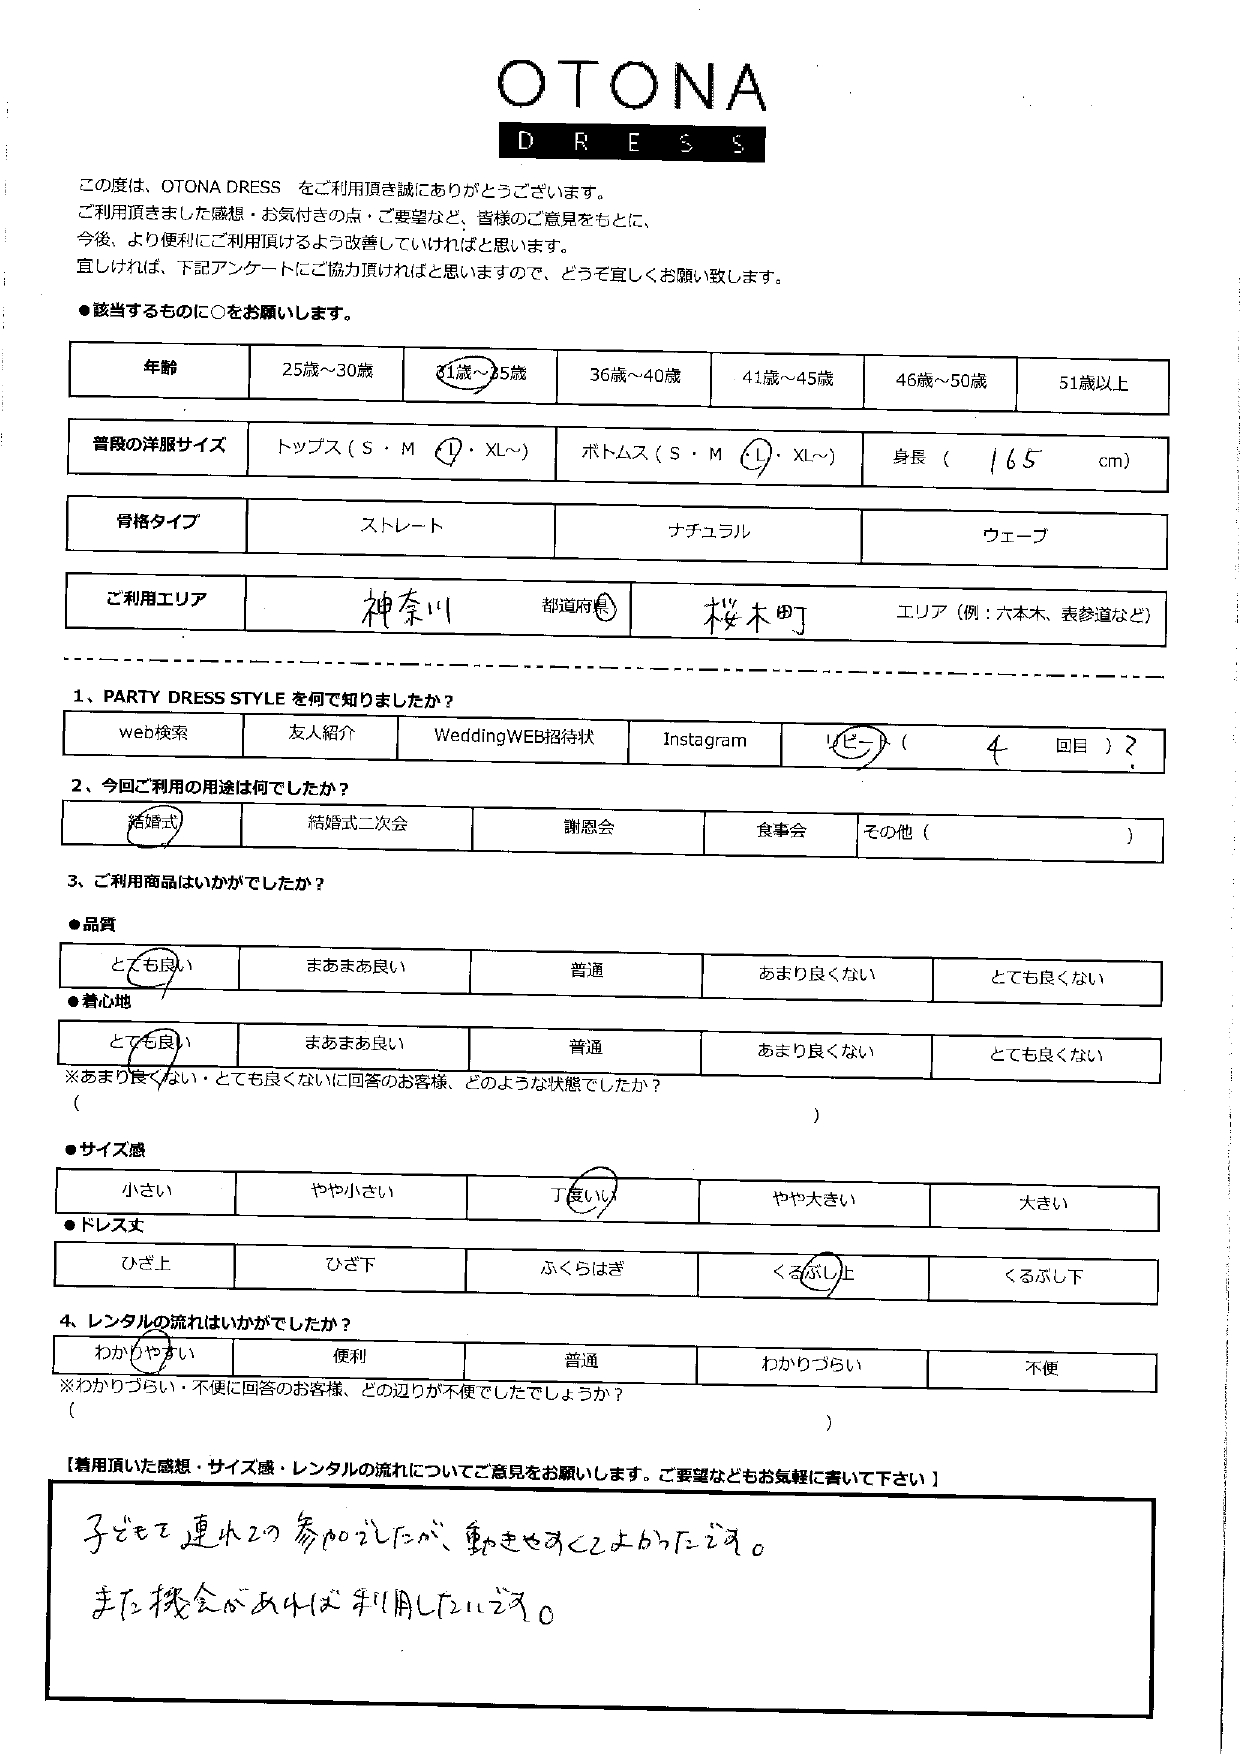 OTONA
DRESS
この度は、OTONA DRESS をご利用頂き誠にありがとうございます。
ご利用頂きました感想・お気付きの点・ご要望など、皆様のご意見をもとに、
今後、より便利にご利用頂けるよう改善していければと思います。
宜しければ、下記アンケートにご協力頂ければと思いますので、どうぞ宜しくお願い致します。
●該当するものに○をお願いします。
年齢 25歳～30歳 31歳～35歳 36歳～40歳 41歳～45歳 46歳～50歳 51歳以上
普段の洋服サイズ トップス（S・M・L・XL～） ボトムス（S・M・L・XL～） 身長（ 165 cm）
骨格タイプ ストレート ナチュラル ウェーブ
ご利用エリア 神奈川 都道府県 桜木町 エリア（例：六本木、表参道など）
1、PARTY DRESS STYLE を何で知りましたか？
web検索 友人紹介 WeddingWEB招待状 Instagram リピート（ 4 回目 ）？
2、今回ご利用の用途は何でしたか？
結婚式 結婚式二次会 謝恩会 食事会 その他（ ）
3、ご利用商品はいかがでしたか？
●品質
とても良い まあまあ良い 普通 あまり良くない とても良くない
●着心地
とても良い まあまあ良い 普通 あまり良くない とても良くない
※あまり良くない・とても良くないに回答のお客様、どのような状態でしたか？
（ ）
●サイズ感
小さい やや小さい 丁度いい やや大きい 大きい
●ドレス丈
ひざ上 ひざ下 ふくらはぎ くるぶし上 くるぶし下
4、レンタルの流れはいかがでしたか？
わかりやすい 便利 普通 わかりづらい 不便
※わかりづらい・不便に回答のお客様、どの辺りが不便でしたでしょうか？
（ ）
【着用頂いた感想・サイズ感・レンタルの流れについてご意見をお願いします。ご要望などもお気軽に書いて下さい】
子どもを連れての参加でしたが、動きやすくてよかったです。
また機会があれば利用したいです。